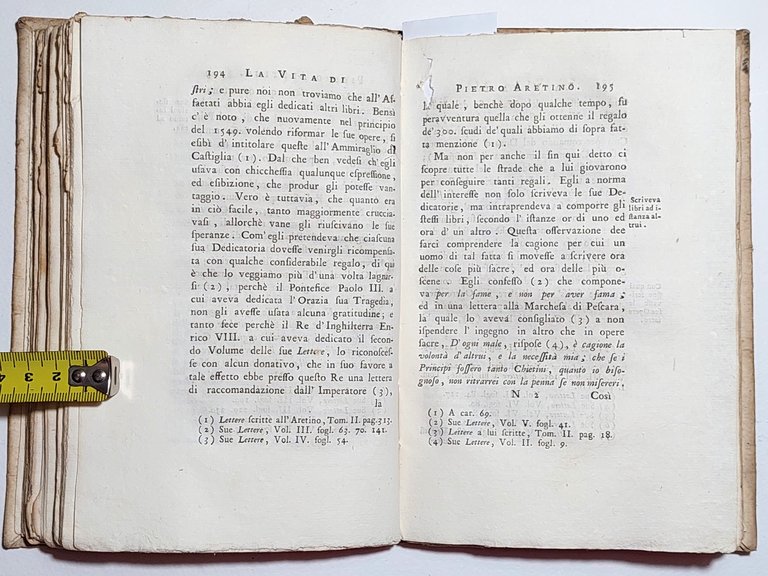 194 LA VITA DI
stri; e pure noi non troviamo che all'Af-
faetati abbia egli dedicati altri libri. Bensì
c'è noto, che nuovamente nel principio
del 1549. volendo riformar le sue opere, si
esibì d'intitolare queste all'Ammiraglio di
Castiglia (1). Dal che ben vedesi ch'egli
usava con chicchessia qualunque espressione,
ed esibizione, che produr gli potesse van-
taggio. Vero è tuttavia, che quanto era
in ciò facile, tanto maggiormente cruccia-
vasi, allorchè vane gli riuscivano le sue
speranze. Com'egli pretendeva che ciascuna
sua Dedicatoria dovesse venirgli ricompensa-
ta con qualche considerabile regalo, di qui
è che lo veggiamo più d'una volta lagnar-
si (2), perchè il Pontefice Paolo III. a
cui aveva dedicata l'Orazia sua Tragedia,
non gli avesse usata alcuna gratitudine; e
tanto fece perchè il Re d'Inghilterra En-
rico VIII. a cui aveva dedicato il secon-
do Volume delle sue Lettere, lo riconosces-
se con alcun donativo, che in suo favore a
tale effetto ebbe presso questo Re una lettera
di raccomandazione dall'Imperatore (3),
la
(1) Lettere scritte all'Aretino, Tom. II. pag. 313.
(2) Sue Lettere, Vol. III. fogl. 63. 70. 141.
(3) Sue Lettere, Vol. IV. fogl. 54.
PIETRO ARETINO. 195
la quale, benchè dopo qualche tempo, fu
peravventura quella che gli ottenne il regalo
de' 300. scudi de' quali abbiamo di sopra fat-
ta menzione (1).
Ma non per anche il sin qui detto ci
scopre tutte le strade che a lui giovarono
per conseguire tanti regali. Egli a norma
dell'interesse non solo scriveva le sue De-
dicatorie, ma intraprendeva a comporre gli
stessi libri, secondo l'istanze or di uno ed
ora d'un altro. Questa osservazione dee
farci comprendere la cagione per cui un
uomo di tal fatta si movesse a scrivere ora
delle cose più sacre, ed ora delle più o-
scene. Egli confessò (2) che compone-
va per la fame, e non per aver fama;
ed in una lettera alla Marchesa di Pescara,
la quale lo aveva consigliato (3) a non
ispendere l'ingegno in altro che in opere
sacre, D'ogni male, rispose (4), è cagione la
volontà d'altrui, e la necessità mia; che se i
Principi fossero tanto Chietini, quanto io biso-
gnoso, non ritrarrei con la penna se non misereri.
Scriveva
libri ad i-
stanza al-
trui.
N 2 Così
(1) A car. 69.
(2) Sue Lettere, Vol. V. fogl. 41.
(3) Lettere a lui scritte, Tom. II. pag. 18.
(4) Sue Lettere, Vol. II. fogl. 9.
4 3 2